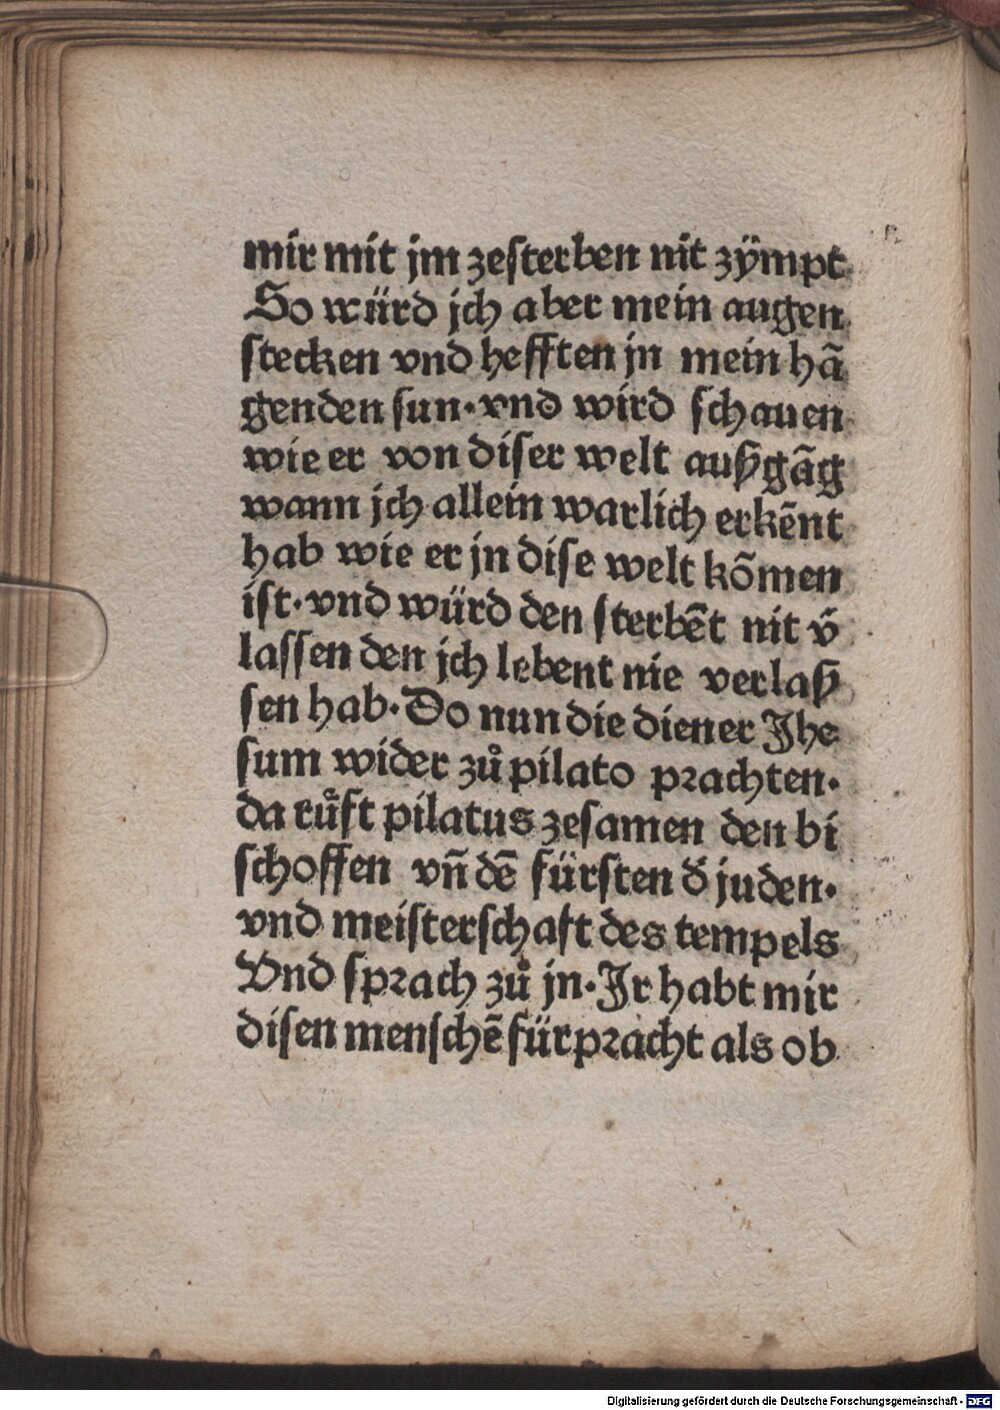 mir mit jm zesterben nit zÿmpt
So würd jch aber mein augen
stecken vnd hefften jn mein hã
genden sun· vnd wird schauen
wie er von diser welt außgãg
wann jch allein warlich erkẽnt
hab wie er jn dise welt kõmen
ist· vnd würd den sterbẽt nit ṽ
lassen den jch lebent nie verlaß
sen hab· Do nun die diener Jhe
sum wider zů pilato prachten·
da růft pilatus zesamen den bi
schoffen vñ dẽ fürsten d̕ juden·
vnd meisterschaft des tempels
Vnd sprach zů jn· Jr habt mir
disen menschẽ fürpracht als ob
Digitalisierung gefördert durch die Deutsche Forschungsgemeinschaft - DFG